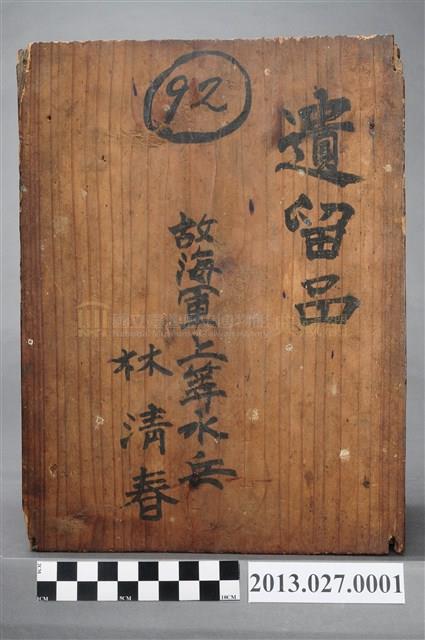 92
遺留品
故海軍上等水兵
林清春
國立臺灣歷史博物館
1CM
5CM
10CM
2013.027.0001